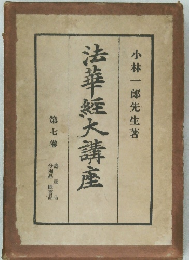 小林一郎先生著
法華經大講座
第七卷